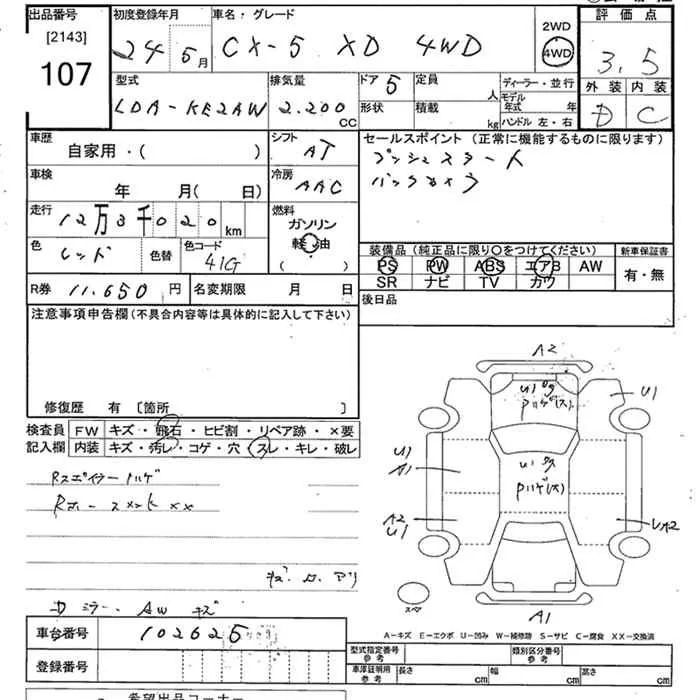 出品番号
[2143]
107
初度登録年月
24 5月
車名・グレード
CX-5 XD 4WD
2WD
4WD
評価点
3.5
外装 内装
D C
型式
LDA-KE2AW
排気量
2.200 CC
ドア 5
形状
定員 人
積載 kg
ディーラー・並行
モデル年式 年
ハンドル 左・右
車歴
自家用・( )
シフト
AT
車検
年 月( 日)
冷房
AAC
走行
12万3千020km
燃料
ガソリン
軽油
( )
色
レッド
色替
色コード
41G
セールスポイント(正常に機能するものに限ります)
プッシュスタート
バックカメラ
装備品(純正品に限り○をつけてください)
PS PW ABS エアB AW
SR ナビ TV カワ
新車保証書
有・無
R券 11.650 円
名変期限 月 日
後日品
注意事項申告欄(不具合内容等は具体的に記入して下さい)
修復歴 有 〔箇所 〕
検査員記入欄
FW キズ・飛石・ヒビ割・リペア跡・×要
内装 キズ・汚レ・コゲ・穴・スレ・キレ・破レ
Rスポイラーハゲ
キズ
Dミラー、AWキズ
A2
U1
U1
A1
A2
U1
UA2
A1
スペア
A-キズ E-エクボ U-凹み W-補修跡 S-サビ C-腐食 XX-交換済
車台番号 102625
登録番号
型式指定番号
参考
類別区分番号
参考
車庫証明用
参考
長さ cm 幅 cm 高さ cm
希望出品コーナー